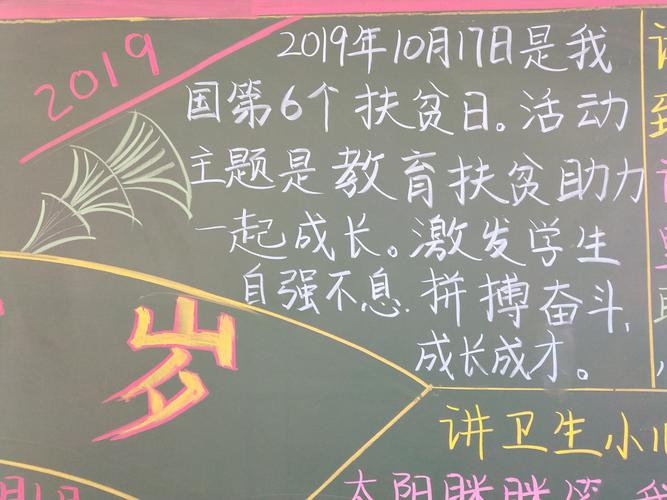 2019
2019年10月17日是我
国第6个扶贫日。活动
主题是教育扶贫助力
一起成长。激发学生
自强不息.拼搏奋斗,
成长成才。
岁
讲卫生小
太阳眯眯